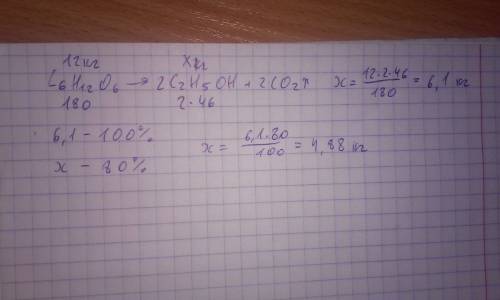 12кг xкг
C6H12O6 → 2C2H5OH + 2CO2↑ x = 12·2·46/180 = 6,1 кг
180 2·46
6,1 – 100% x = 6,1·80/100 = 4,88 кг
x – 80%